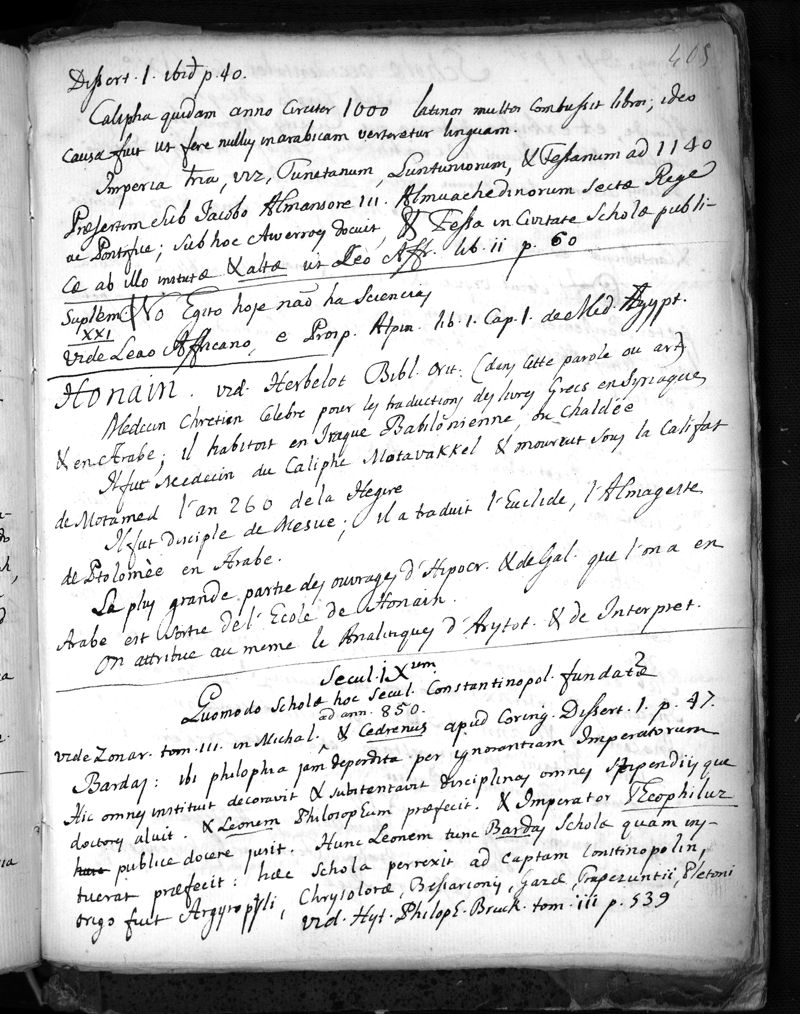 405
Dissert. 1. ibid p. 40.
Calipha quidam anno circiter 1000 latinos multos combussit libros; ideo
causa fuit ut fere nullus in arabicam verteretur linguam.
Imperia tria, viz, Tunetanum, Luntunorum, & Fessanum ad 1140
Præsertim sub Jacobo Almansore III. Almuachedinorum sectæ Rege
ac Pontifice; sub hoc Averroes docuit, & Fessa in Civitate Scholæ publi-
cæ ab illo institutæ & altæ ut Leo Affr. lib. II p. 60
Suplem. No Egito hoje naõ ha sciencias
XXI
vide Leao Affricano, e Prosp. Alpin. lib. 1. Cap. 1. de Med. Ægypt.
Honain. vid. Herbelot Bibl. Orit. (dans cette parole ou art)
Medecin Chretien celebre pour les traductions des livres Grecs en Syriaques
& en Arabe; il habitoit en Iraque Babilonienne, ou Chaldée
Il fut Medecin du Caliphe Motavakkel & mourrut sous la Califat
de Motamed l'an 260 de la Hegire
Il fut disciple de Mesue; il a traduit l'Euclide, l'Almageste
de Ptolomèe en Arabe.
Le plus grande partie des ouvrages d'Hipocr. & de Gal. que l'on a en
Arabe est sortie de l'Ecole de Honain.
On attribue au meme le Analitiques d'Arystot. & de Interpret.
Secul. IXum
Quomodo Scholæ hoc Secul. Constantinopol. fundatæ
ad ann. 850.
vide Zonar. tom. III. in Michal. & Cedrenus apud Coring. Dissert. 1. p. 47.
Bardas: ibi philophia jam deperdita per ignorantiam Imperatorum
Hic omnes instituit decoravit & substentavit disciplinas omnes stipendiisque
doctores aluit. & Leonem Philosophum præfecit. & Imperator Theophilus
publice docere jusit. Hunc Leonem tunc Bardas Scholæ quam ins-
tuerat præfecit: hæc Schola perrexit ad captam constinopolin,
origo fuit Argyropyli, Chrysoloræ, Bessarionis, Gazæ, Trapezuntii, Pletoni
vid. Hyst. Philoph. Bruck. tom. iii p. 539